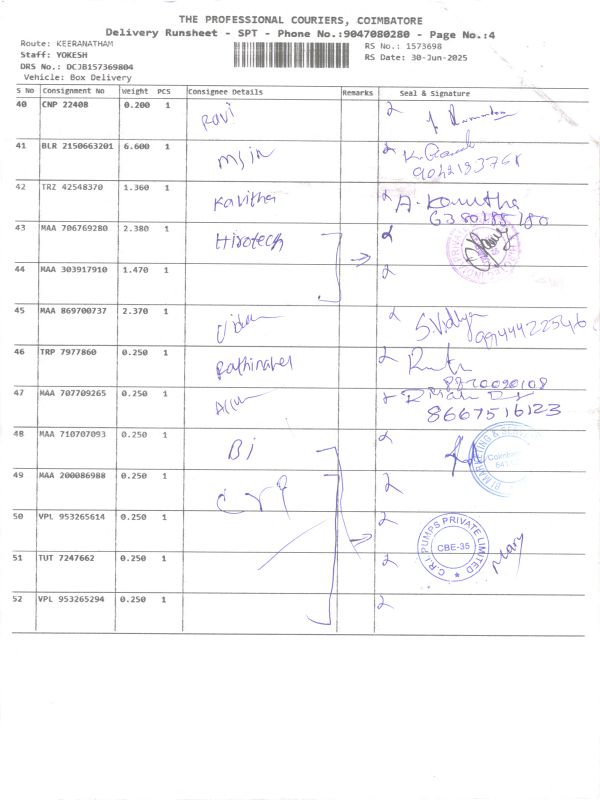 THE PROFESSIONAL COURIERS, COIMBATORE
Delivery Runsheet - SPT - Phone No.:9047080280 - Page No.:4
Route: KEERANATHAM
RS No.: 1573698
Staff: YOKESH
RS Date: 30-Jun-2025
DRS No.: DCJB157369804
Vehicle: Box Delivery
S No Consignment No Weight PCS Consignee Details Remarks Seal & Signature
40 CNP 22408 0.200 1 Ravi
41 BLR 2150663201 6.600 1
42 TRZ 42548370 1.360 1 Kavitha A. Kavitha
43 MAA 706769280 2.380 1 Hirotech
44 MAA 303917910 1.470 1
45 MAA 869700737 2.370 1 S. Vidhya
46 TRP 7977860 0.250 1 Rathinavel
8870090108
47 MAA 707709265 0.250 1
8667516123
48 MAA 710707093 0.250 1 Bi
49 MAA 200086988 0.250 1
50 VPL 953265614 0.250 1
C.R.I. PUMPS PRIVATE LIMITED
CBE-35
51 TUT 7247662 0.250 1
52 VPL 953265294 0.250 1